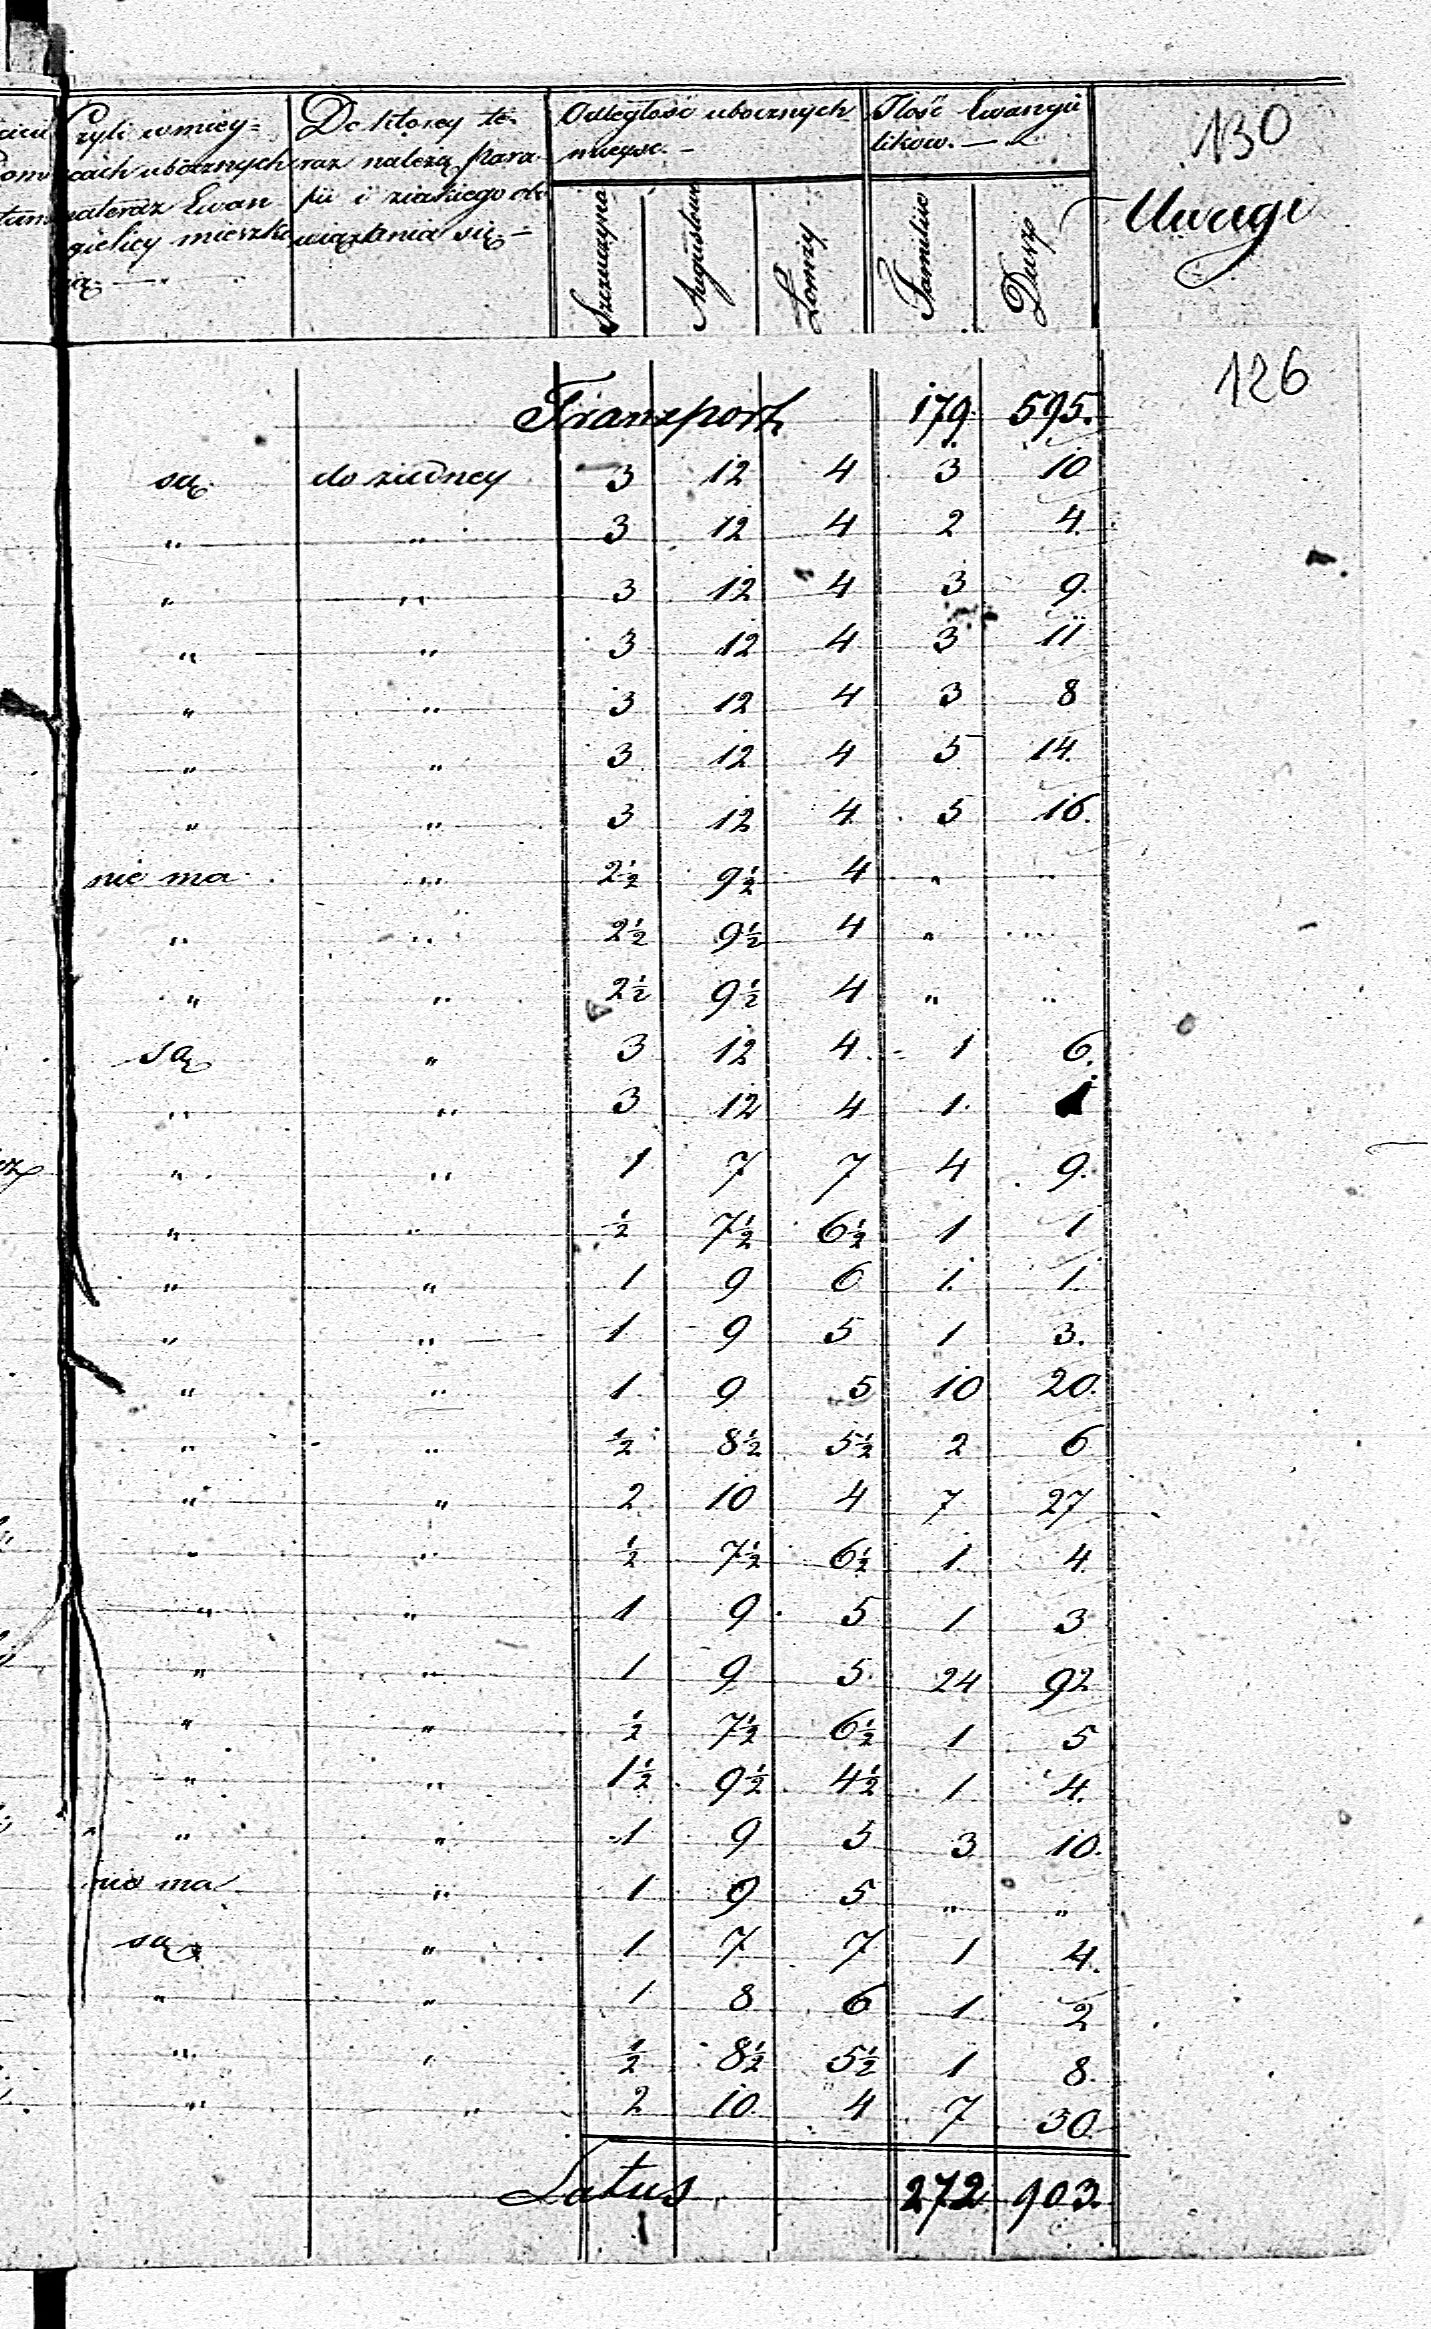 Czyli w miey=
scach ubocznych
nateraz Ewan
gielicy mieszka
ią. —
Do ktorey te-
raz należą Para-
fii i ziakiego obo-
wiązkania się —
Odległość ubocznych
mieysc. —
Szczuczyna
Augustowa
Łomży
Ilość Ewangie
likow. —
Familiie
Dusz
130
Uwagi
126
Transport 179. 595.
są do żiadney 3 12 4 3 10
„ „ 3 12 4 2 4.
„ „ 3 12 4 3 9.
„ „ 3 12 4 3 11
„ „ 3 12 4 3 8
„ „ 3 12 4 5 14.
„ „ 3 12 4 5 16.
nie ma „ 2½ 9½ 4 „ „
„ „ 2½ 9½ 4 „ „
„ „ 2½ 9½ 4 „ „
są „ 3 12 4 1 6.
„ „ 3 12 4 1
„ „ 1 7 7 4 9.
„ „ ½ 7½ 6½ 1 1
„ „ 1 9 6 1. 1.
„ „ 1 9 5 1 3.
„ „ 1 9 5 10 20.
„ „ ½ 8½ 5½ 2 6
„ „ 2 10 4 7 27
„ „ ½ 7½ 6½ 1 4
„ „ 1 9 5 1 3
„ „ 1 9 5 24 92
„ „ ½ 7½ 6½ 1 5
„ „ 1½ 9½ 4½ 1 4.
„ „ 1 9 5 3 10.
nie ma „ 1 9 5 „ „
są „ 1 7 7 1 4.
„ „ 1 8 6 1 2
„ „ ½ 8½ 5½ 1 8.
„ „ 2 10 4 7 30.
Latus 272 903.